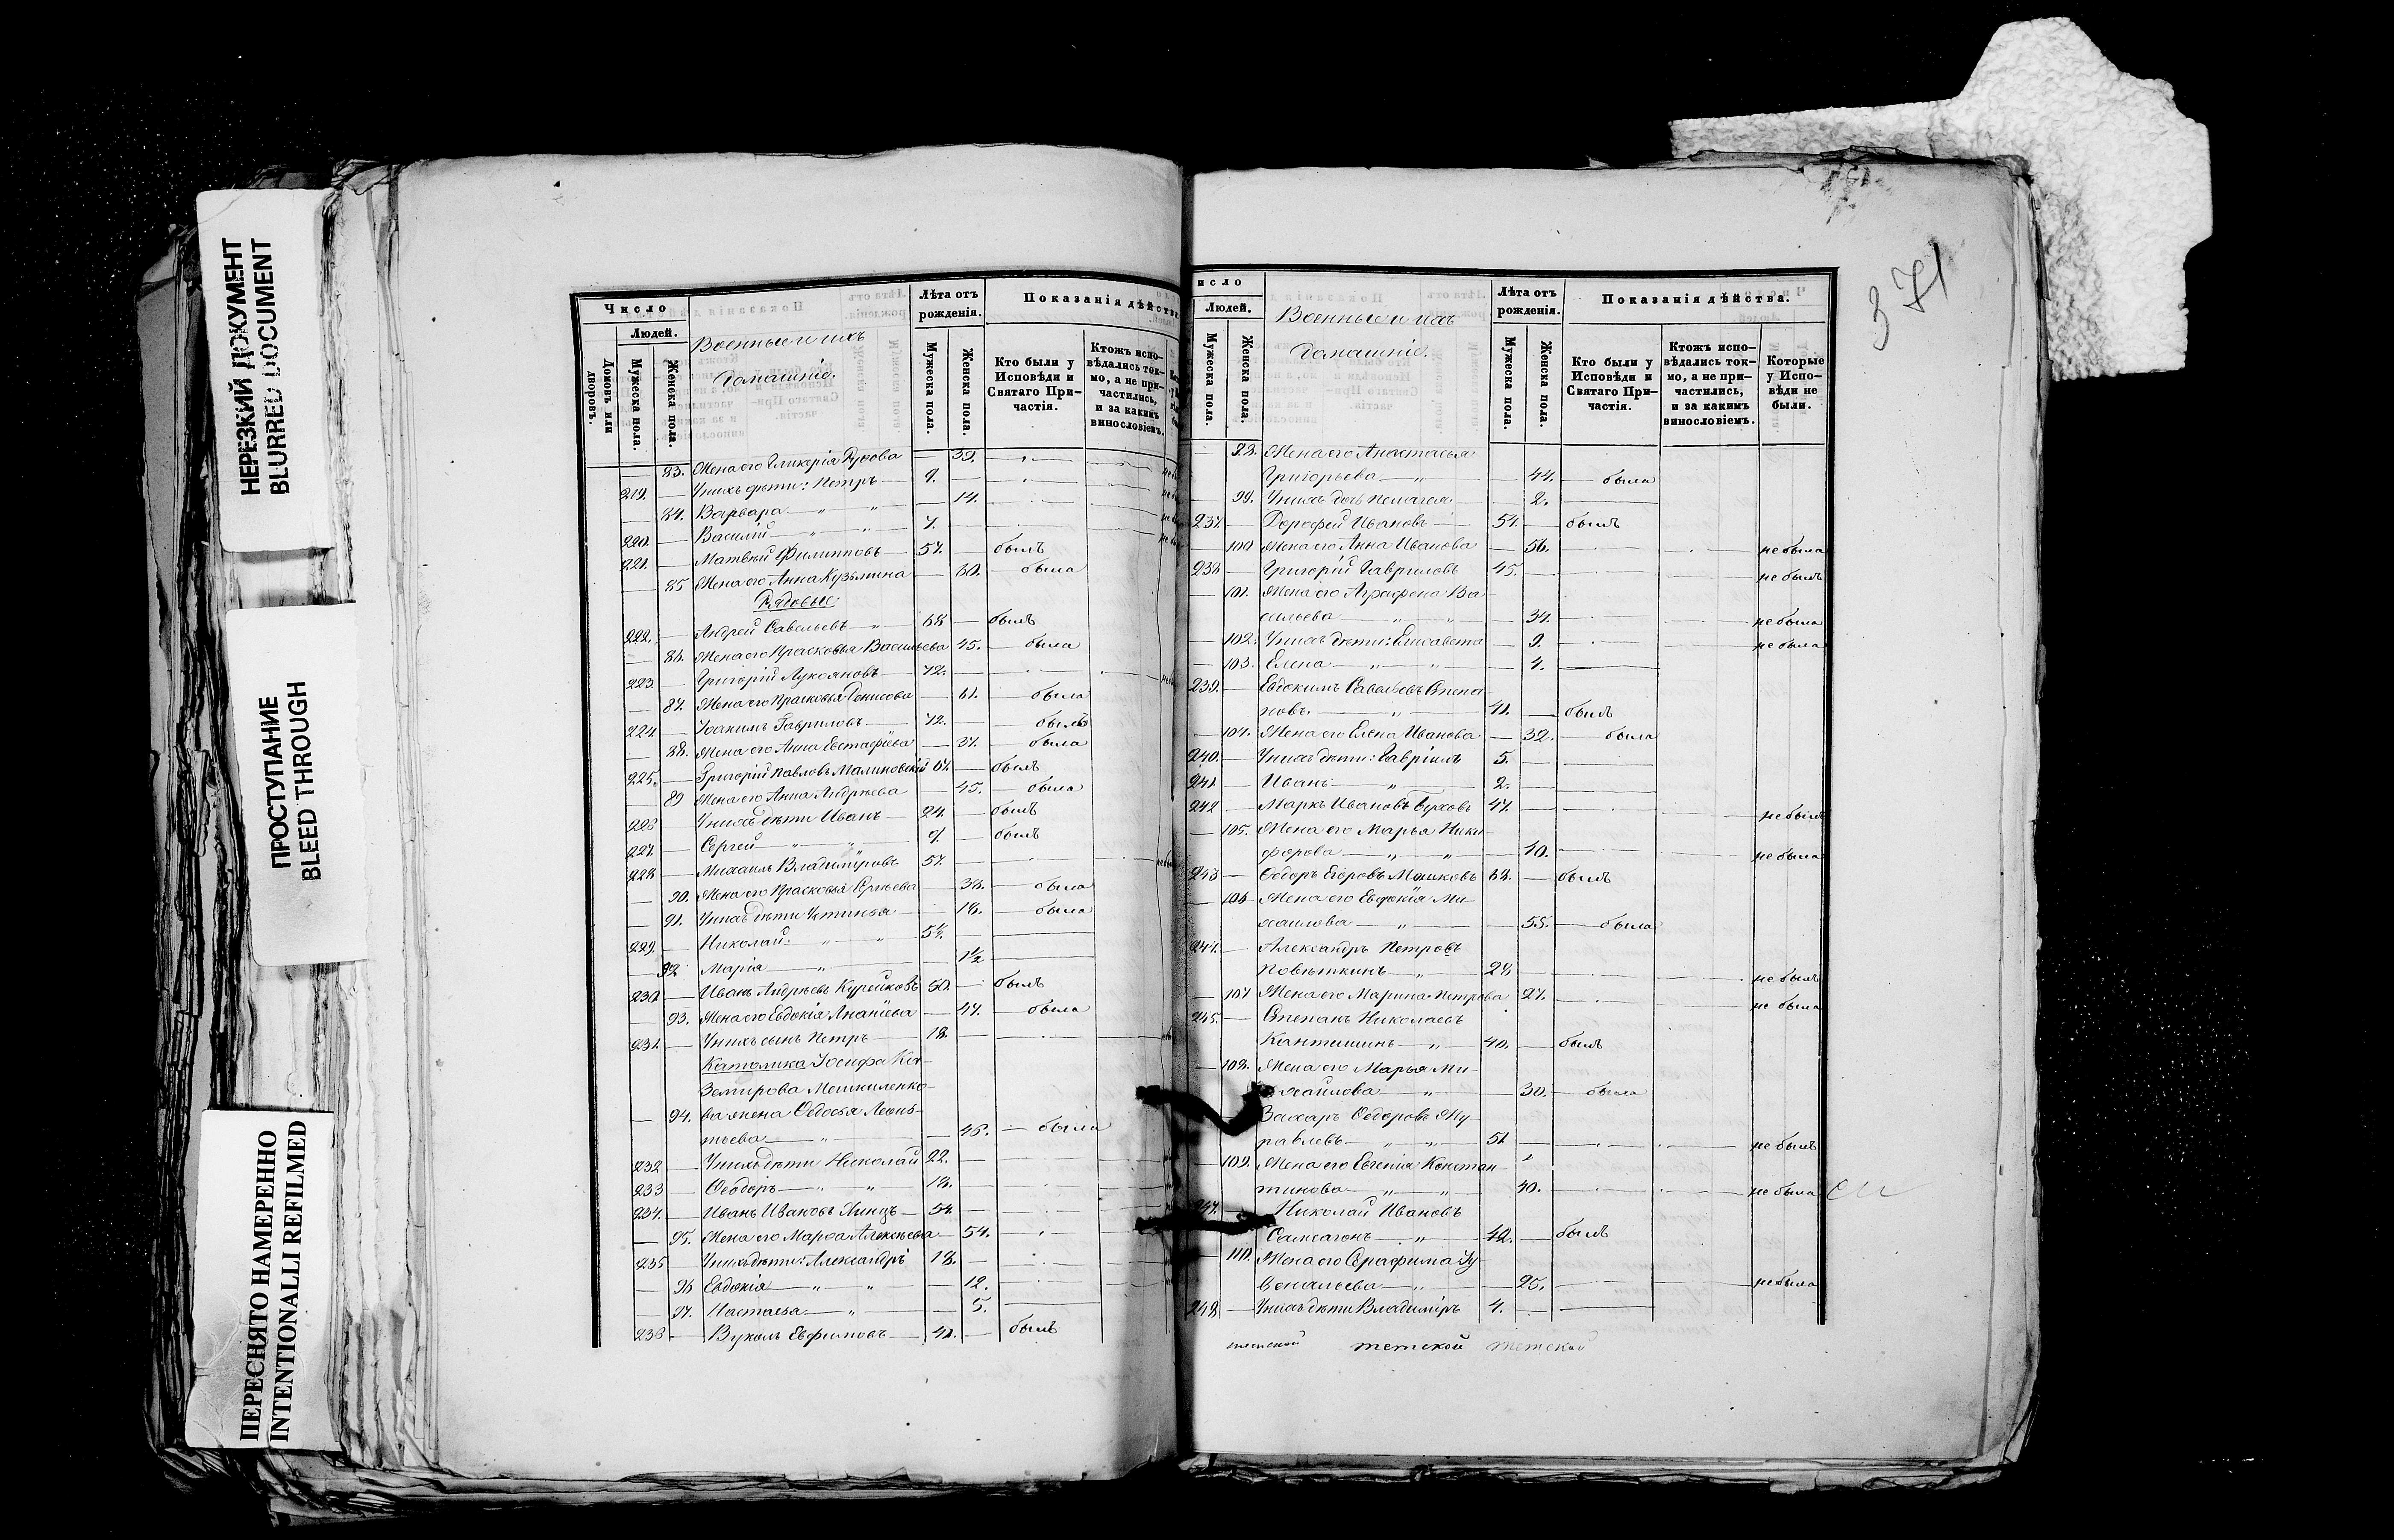 НЕРЕЗКИЙ ДОКУМЕНТ
BLURRED DOCUMENT
ПРОСТУПАНИЕ
BLEED THROUGH
ПЕРЕСНЯТО НАМЕРЕННО
INTENTIONALLI REFILMED
Число
Людей.
Домовъ или дворовъ.
Мужеска пола.
Женска пола.
Военные и ихъ
домашніе.
Лѣта отъ рожденія.
Мужеска пола.
Женска пола.
Показанія дѣйства
Кто были у Исповѣди и Святаго Причастія.
Ктожъ исповѣдались токмо, а не причастились, и за какимъ винословіемъ.
83. Жена его Гликерія — 39.
219. У нихъ дѣти: Петръ — 9.
84. Варвара — 14.
220. Василій — 7.
221. Матвѣй Филипповъ — 57. — былъ
85 Жена его Анна Кузьмина — 60. — была
Рядовые
222. Андрей Савельевъ — 68 — былъ
86. Жена его Прасковья Васильева 45. — была
223. Григорій Лукояновъ — 72.
87. Жена его Прасковья Денисова — 61. — была
224 Іоакимъ Гавриловъ — 72. — былъ
88. Жена его Анна Евстафіева — 37. — была
225. Григорій Павловъ Малиновскій 67. — былъ
89 Жена его Анна Андреева — 45. — была
226 У нихъ дѣти Иванъ — 24. — былъ
227. Сергей — 9. — былъ
228 Михаилъ Владиміровъ 57.
90. Жена его Прасковья — 38. — была
91. У нихъ дѣти Устинья — 18. — была
229. Николай — 5½.
92 Марія — 1½
230 Иванъ Андреевъ Курейковъ 50. — былъ
93. Жена его Евдокія Ананіева — 47. — была
231. У нихъ сынъ Петръ — 18.
Католика Іосифа Ка-
земирова
94. ва жена Ѳедосья Леонь-
тьева — 48. — была
232 У нихъ дѣти Николай 22.
233 Ѳеодоръ — 18.
234. Иванъ Ивановъ — 54
95. Жена его Марѳа Алексѣева — 54.
235 У нихъ дѣти: Александръ 18.
96 Евдокія — 12.
97. Настасья — 5.
236 Вуколъ Евфимовъ — 41. — былъ
371
число
Людей.
Мужеска пола.
Женска пола.
Военные и ихъ
домашніе.
Лѣта отъ рожденія.
Мужеска пола.
Женска пола.
Показанія дѣйства.
Кто были у Исповѣди и Святаго Причастія.
Ктожъ исповѣдались токмо, а не причастились, и за какимъ винословіемъ.
Которые у Исповѣди не были.
98. Жена его Анастасья
Григорьева — 44. — была
99. У нихъ дочь Пелагея — 2.
237. Дорофей Ивановъ — 57. — былъ
100 Жена его Анна Иванова — 56. — не была
238 Григорій Гавриловъ 45. — не былъ
101. Жена его Аграфена Ва
сильева — 34. — не была
102. У нихъ дѣти: Елисавета — 9. — не была
103. Елена — 4.
239. Евдокимъ Савельевъ Степа
новъ — 41. — былъ
104. Жена его Елена Иванова — 32. — была
240. У нихъ дѣти: Гавріилъ 5.
241 Иванъ — 2.
242 Маркъ Ивановъ 47. — не былъ
105. Жена его Марья Ники-
форова — 40. — не была
243 Ѳедоръ Егоровъ 68. — былъ
106 Жена его Евфимія Ми-
хаилова — 55. — была
244. Александръ Петровъ
Повѣткинъ — 28 — не былъ
107 Жена его Марина Петрова 27. — не была
245. Степанъ Николаевъ
Кантишинъ — 40. — былъ
108. Жена его Марья Ми-
хаилова — 30. — была
Захаръ Ѳедоровъ Жу
равлевъ — 51 — не былъ
109. Жена его Евгенія Констан-
тинова — 40. — не была
247. Николай Ивановъ
Саксагонъ — 42. — былъ
110. Жена его Серафима Іу
венальева — 25. — не была
248 У нихъ дѣти Владиміръ 4.
тетской тетской тетской